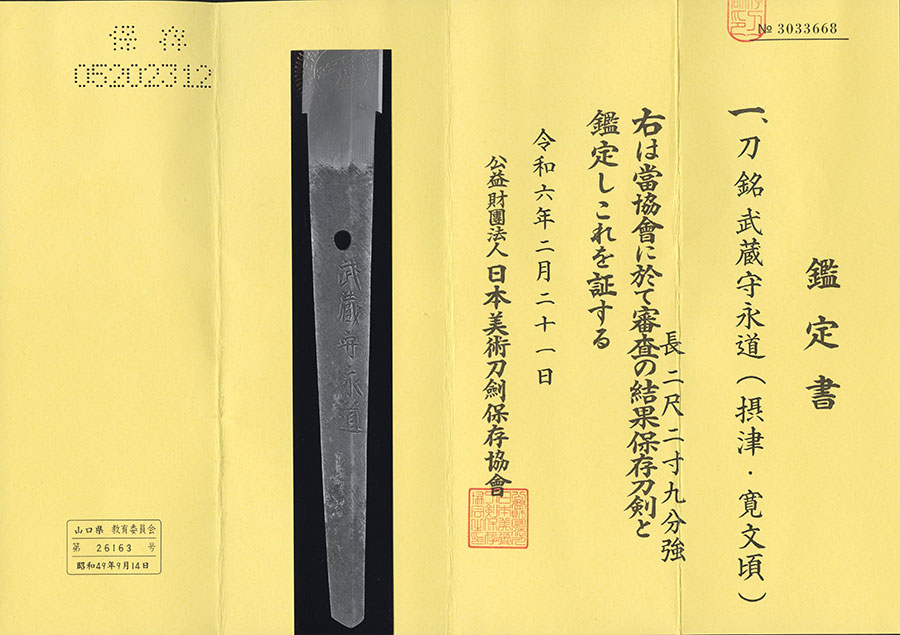 № 3033668
鑑定書
一、刀 銘 武蔵守永道(摂津・寛文頃)
長 二尺二寸九分強
右は當協會に於て審査の結果保存刀剣と
鑑定しこれを証する
令和六年二月二十一日
公益財團法人 日本美術刀劍保存協會
武蔵守永道
保存
05202312
山口県 教育委員会
第 26163 号
昭和49年9月14日